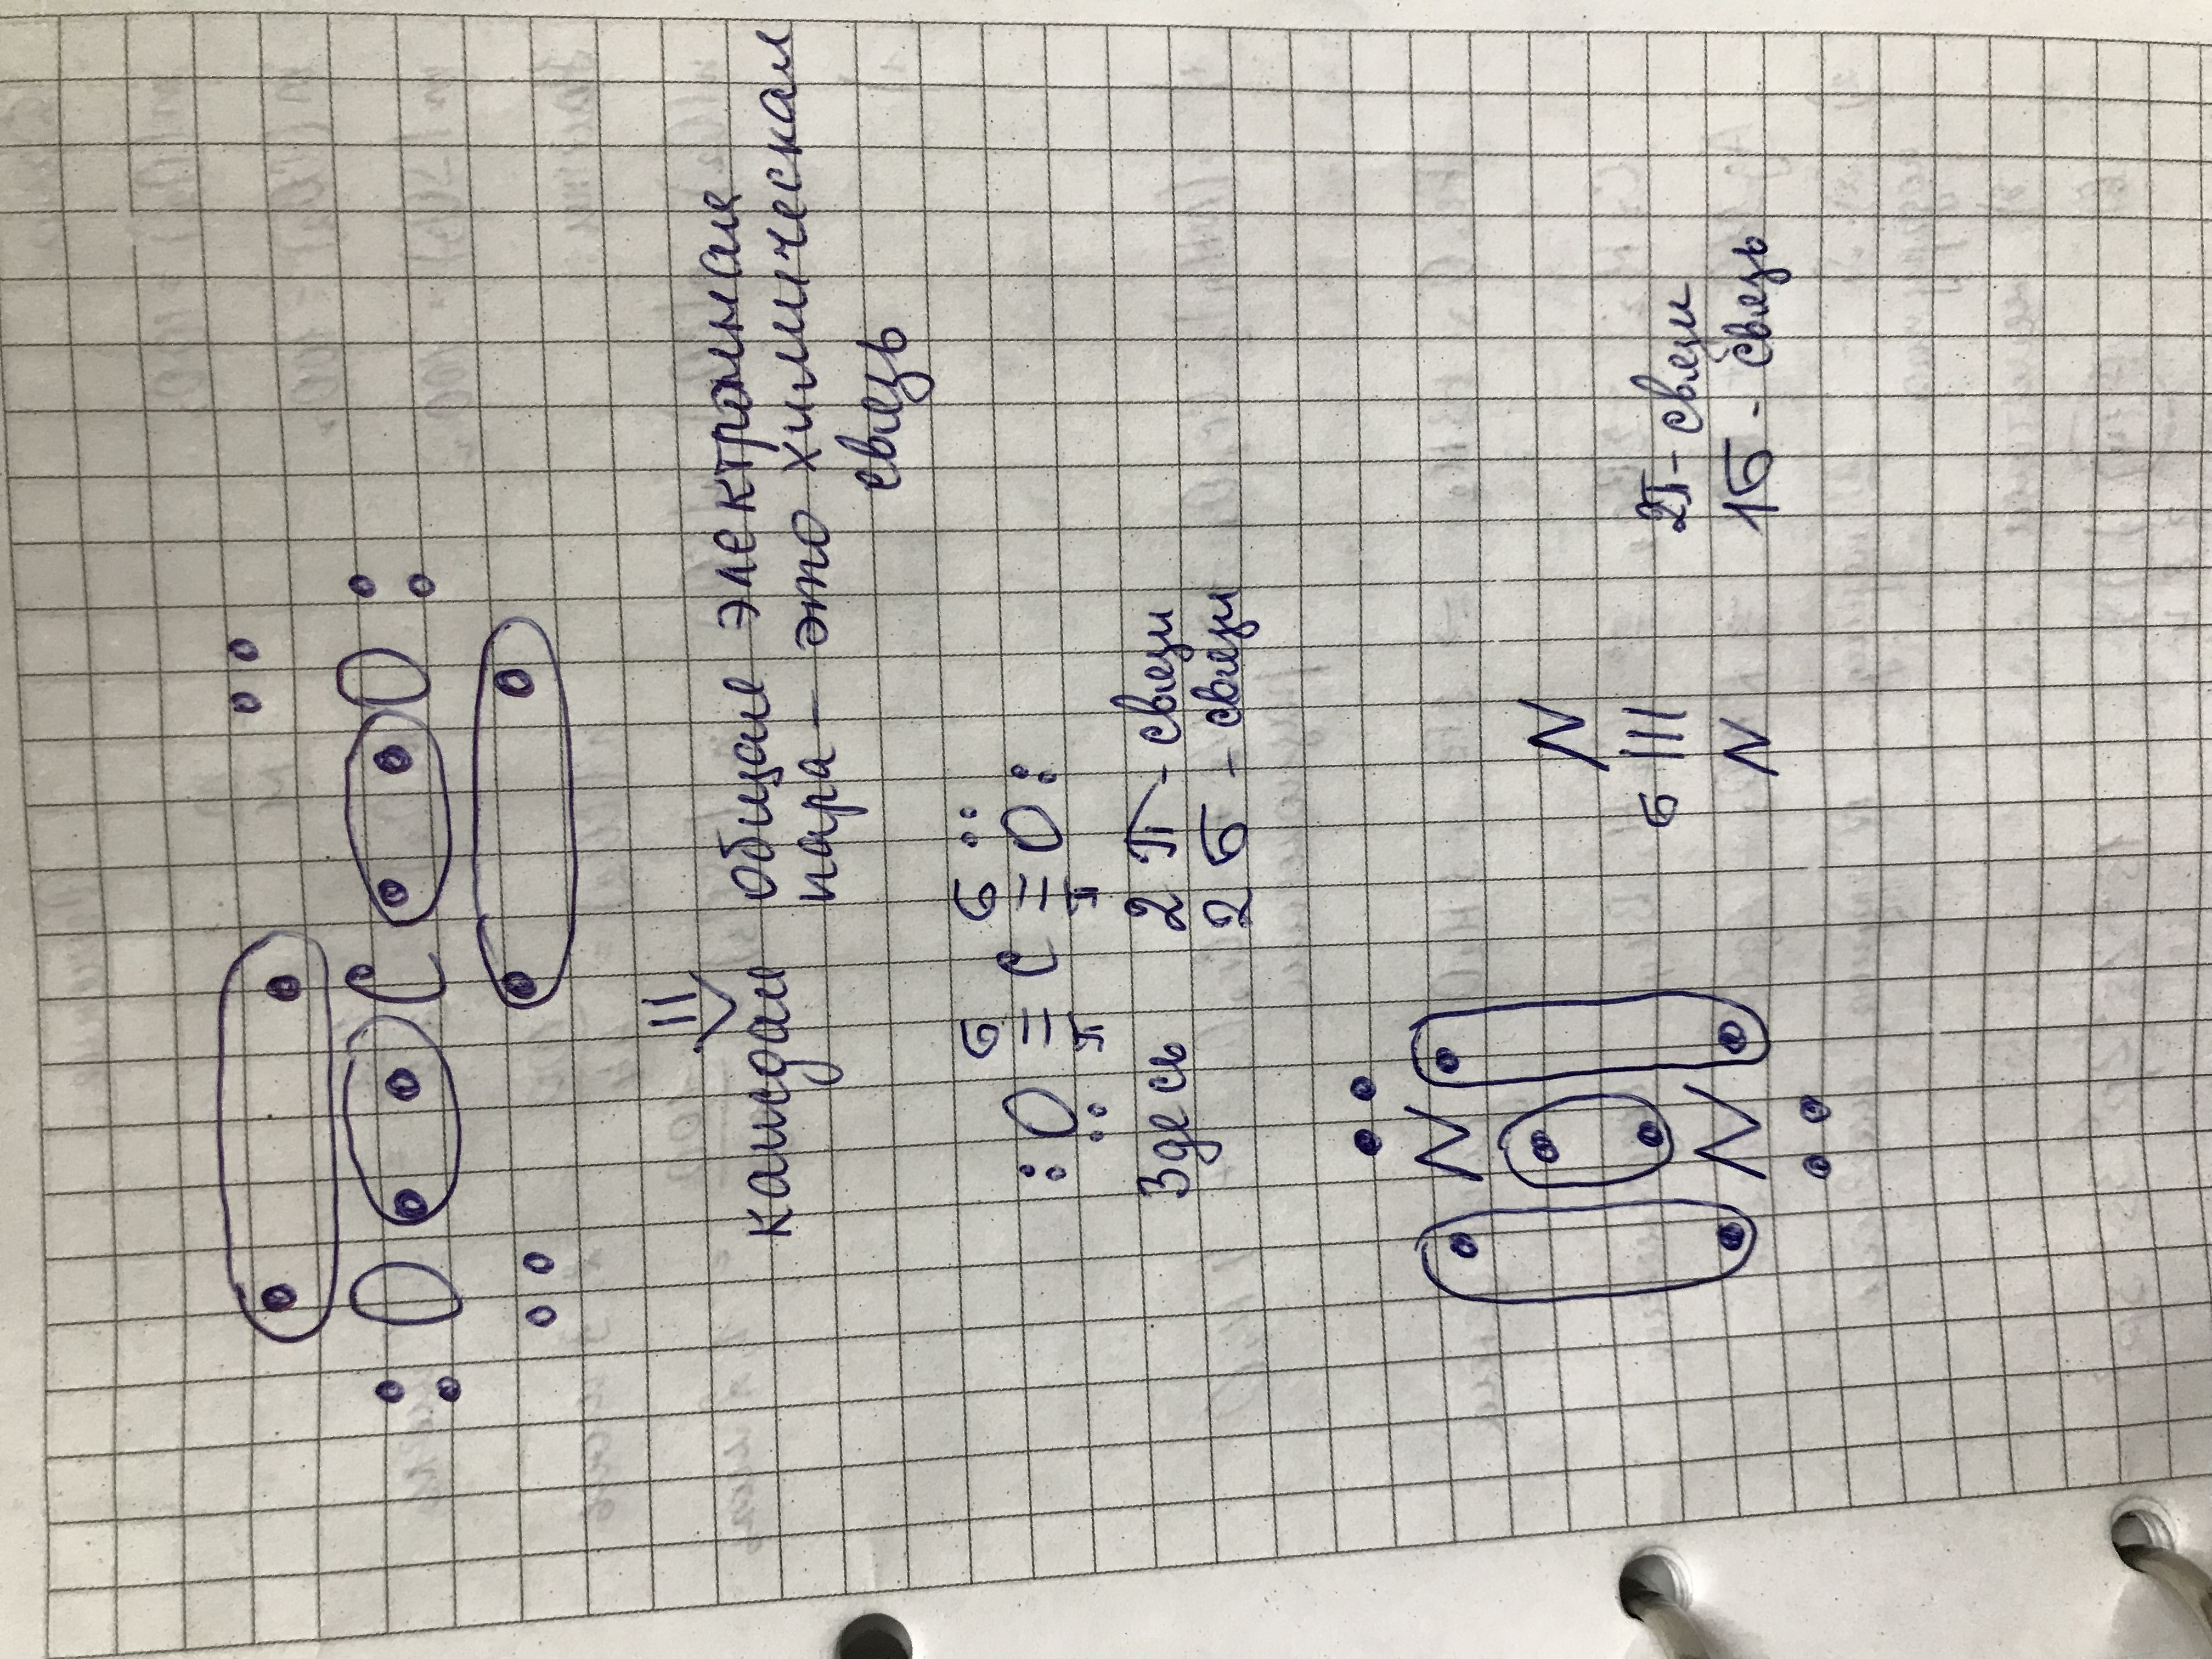 O C O
Каждая общая электронная
пара – это химическая
связь
σ σ
:O = C = O:
π π
Здесь 2 π - связи
2 σ - связи
N N
σ
N ≡ N
2π - связи
1σ - связь